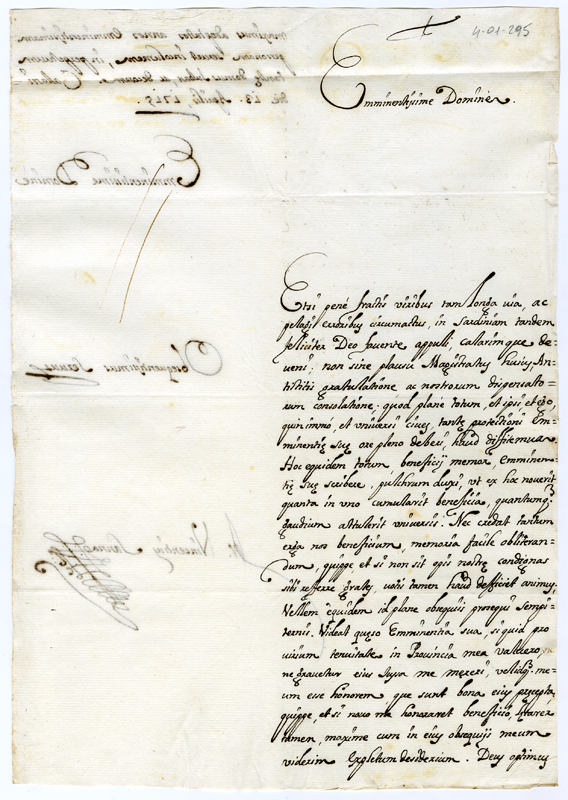 4-01-295
Emminentissime Domine.
Etsi penè fractis viribus tam longa via, ac
pelagi erroribus circumactus, in Sardiniam tandem
feliciter Deo favente appuli, Callarimque de
veni; non sine plausu Magistratus huius, An=
tistitis gratulatione ac nostrorum dispensato=
rum consolatione. quod planè totum, et ipsi, et ego,
quinimmò, et universi cives, tantę protectioni Em=
minentię suę ore pleno deberi, haud diffitemur.
Hoc equidem totum, beneficij memor, Emminen=
tię suę scribere, pulchrum duxi, ut ex hoc noverit
quanta in uno cumularit beneficia, quantumq.
gaudium attulerit universis. Nec credat tantum
erga nos beneficium, memoria facile obliteran=
dum, quippe et si non sit opis nostrę condignas
sibi referre grates, votis tamen haud defficiet animus.
Vellem equidem id planè obsequiis prosequi sempi=
ternis. Videat quęso Emminentia sua, si quid pro
virium tenuitate in Provincia mea valuero,
ne gravetur eius iussa me mereri, velidq. me=
um esse honorem que sunt bona eius pręcepta,
quippe, et si novo me honoraret beneficio,
tamen, maxime cum in eius obsequijs meum
viderim expletum desiderium. Deus optimus